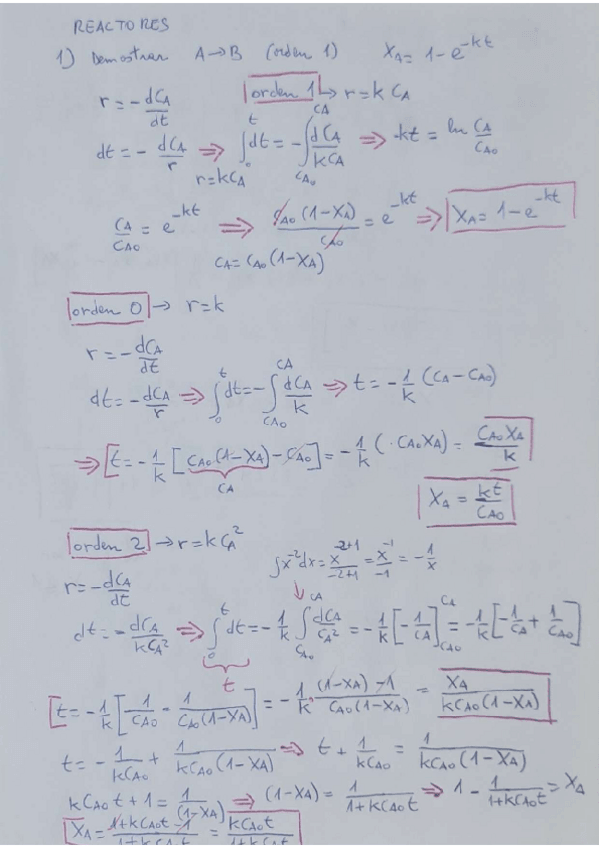 REACTORES
1) Demostrar A→B (orden 1) X_A = 1 - e^{-kt}
r = - dC_A/dt orden 1 → r = k C_A
dt = - dC_A/r ⇒ ∫_0^t dt = - ∫_{C_{A0}}^{C_A} dC_A/(kC_A) ⇒ -kt = ln C_A/C_{A0}
r = kC_A
C_A/C_{A0} = e^{-kt} ⇒ C_{A0}(1-X_A)/C_{A0} = e^{-kt} ⇒ X_A = 1 - e^{-kt}
C_A = C_{A0}(1-X_A)
orden 0 → r = k
r = - dC_A/dt
dt = - dC_A/r ⇒ ∫_0^t dt = - ∫_{C_{A0}}^{C_A} dC_A/k ⇒ t = - 1/k (C_A - C_{A0})
⇒ t = - 1/k [C_{A0}(1-X_A) - C_{A0}] = - 1/k (- C_{A0}X_A) = C_{A0}X_A/k
C_A
X_A = kt/C_{A0}
orden 2 → r = k C_A^2 ∫x^{-2}dx = x^{-2+1}/(-2+1) = x^{-1}/(-1) = - 1/x
r = - dC_A/dt
dt = - dC_A/(kC_A^2) ⇒ ∫_0^t dt = - 1/k ∫_{C_{A0}}^{C_A} dC_A/C_A^2 = - 1/k [- 1/C_A]_{C_{A0}}^{C_A} = - 1/k [- 1/C_A + 1/C_{A0}]
t
t = - 1/k [1/C_{A0} - 1/(C_{A0}(1-X_A))] = - 1/k · ((1-X_A) - 1)/(C_{A0}(1-X_A)) = X_A/(kC_{A0}(1-X_A))
t = - 1/(kC_{A0}) + 1/(kC_{A0}(1-X_A)) ⇒ t + 1/(kC_{A0}) = 1/(kC_{A0}(1-X_A))
kC_{A0}t + 1 = 1/(1-X_A) ⇒ (1-X_A) = 1/(1+kC_{A0}t) ⇒ 1 - 1/(1+kC_{A0}t) = X_A
X_A = (1+kC_{A0}t - 1)/(1+kC_{A0}t) = kC_{A0}t/(1+kC_{A0}t)